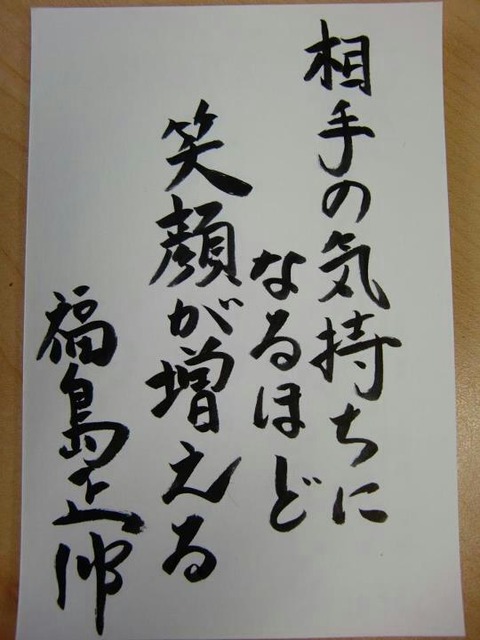 相手の気持ちに
なるほど
笑顔が増える
福島正伸